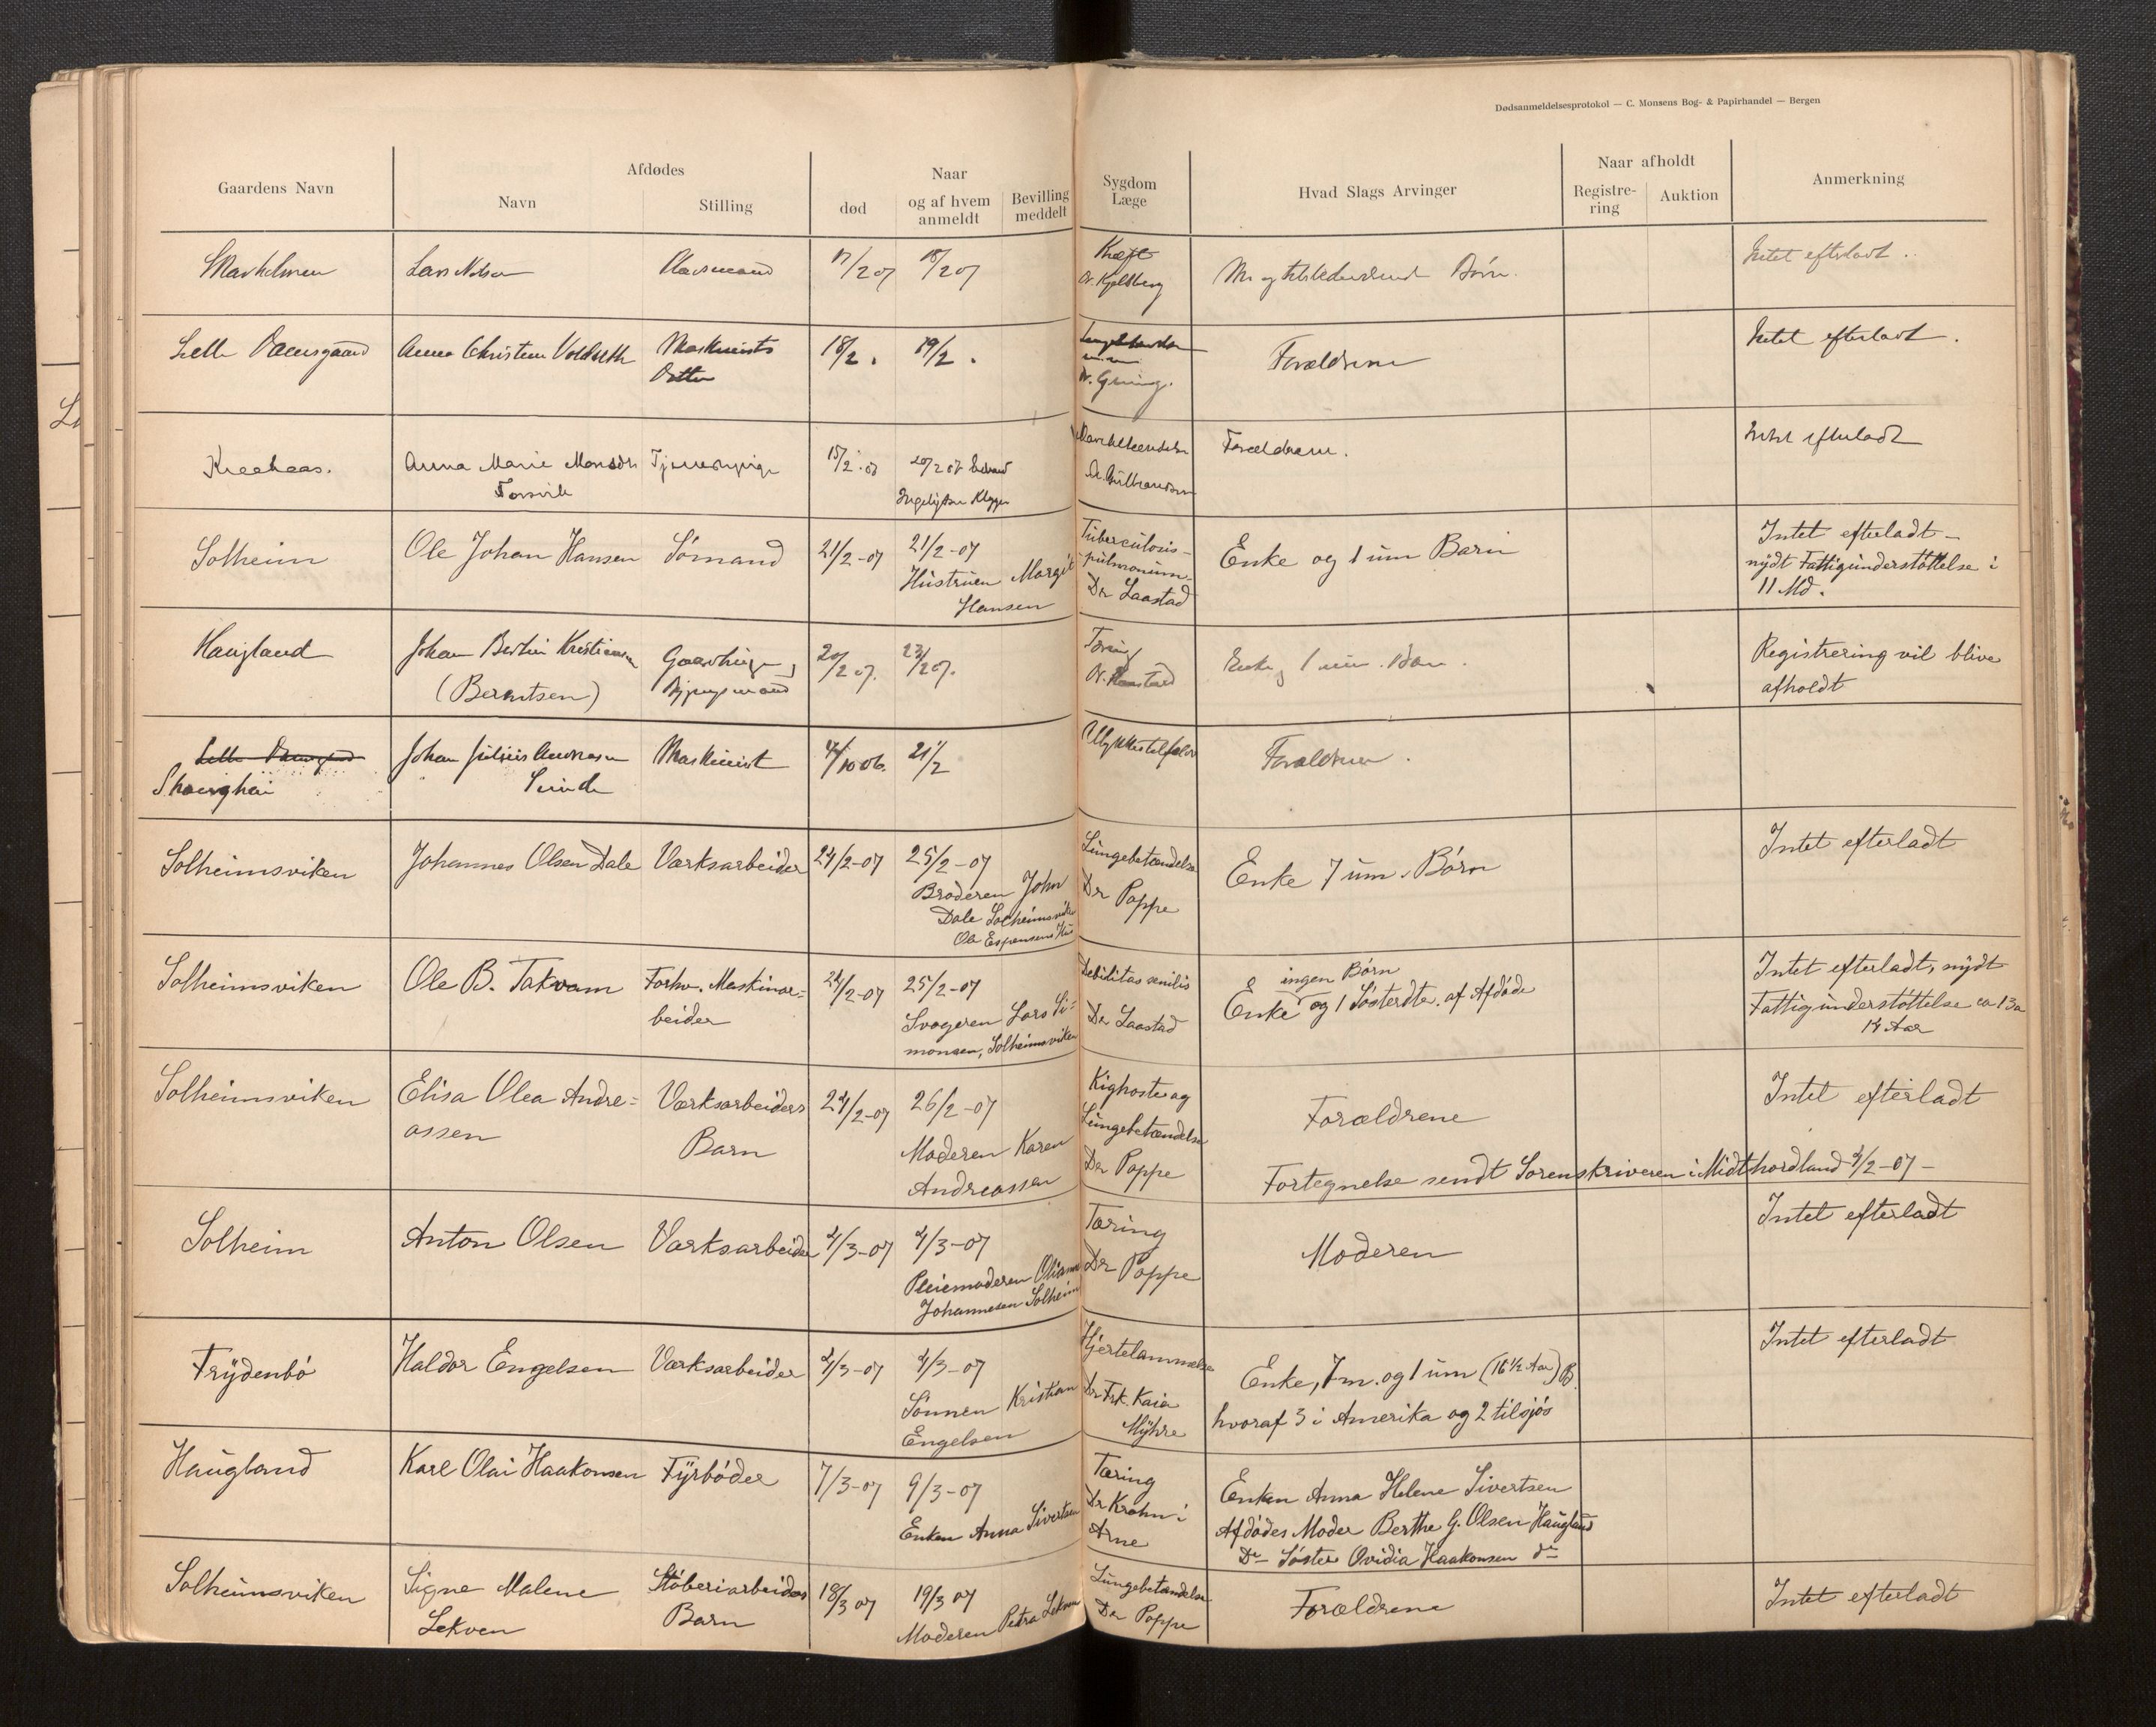 Dødsanmeldelsesprotokol — C. Monsens Bog- & Papirhandel — Bergen
Gaardens Navn
Afdødes
Navn
Stilling
Naar
død
og af hvem
anmeldt
Bevilling
meddelt
Sygdom
Læge
Hvad Slags Arvinger
Naar afholdt
Registre-
ring
Auktion
Anmerkning
Lars
17/2 07
18/2 07
Kræft
Dr. Kjeldberg
Børn.
Intet efterladt.
Lille Damsgaard
Anna Christine
Maskinists
Datter
18/2.
19/2.
Dr.
Forældrene
Intet efterladt.
Kraakaas.
Anna Marie Monsdtr
Tjenestepige
15/2 07
20/2 07
Forældrene.
Intet efterladt
Solheim
Ole Johan Hansen
Sömand
21/2-07
21/2-07
Hustruen Margit
Hansen
Tuberculosis
pulmonum.
Dr Laastad
Enke og 1 um Barn
Intet efterladt -
nydt Fattigunderstøttelse i
11 Md.
Haugland
Johan Bertin Kristiansen
(Berntsen)
20/2 07.
23/2 07.
Tæring
Enke og 1 um. Barn.
Registrering vil blive
afholdt
Lille Damsgaard
Shanghai
Johan Julius Andreasen
Maskinist
4/10 06.
21/2
Ulykkestilfælde
Forældrene.
Solheimsviken
Johannes Olsen Dale
Værksarbeider
24/2-07
25/2-07
Broderen John
Dale Solheimsvik
Ole Espensens Hus
Lungebetændelse
Dr Poppe
Enke 7 um. Børn
Intet efterladt
Solheimsviken
Ole B. Takvam
Forhv. Maskinar=
beider
24/2-07
25/2-07
Svogeren Lars Si=
monsen, Solheimsviken
Debilitas senilis
Dr Laastad
ingen Börn
Enke og 1 Søsterdtr. af Afdöde
Intet efterladt, nydt
Fattigunderstøttelse ca 13 a
14 Aar
Solheimsviken
Elisa Olea Andre=
assen
Værksarbeiders
Barn
24/2-07
26/2-07
Moderen Karen
Andreassen
Kighoste og
Lungebetændelse
Dr Poppe
Forældrene
Intet efterladt
Fortegnelse sendt Sorenskriveren i Midthordland
Solheim
Anton Olsen
Værksarbeider
4/3-07
4/3-07
Pleiemoderen
Johannesen Solheim
Tæring
Dr Poppe
Moderen
Intet efterladt
Frydenbö
Haldor Engelsen
Værksarbeider
4/3-07
4/3-07
Sønnen Kristian
Engelsen
Hjertelammelse
Dr Frk. Kaia
Myhre
Enke, 7 m. og 1 um (16 1/2 Aar) B.
hvoraf 3 i Amerika og 2 tilsjös
Intet efterladt
Haugland
Karl Olai Haakonsen
Fyrböder
7/3-07
9/3-07
Enken Anna Sivertsen
Tæring
Dr Krohn i
Arne
Enken Anna Helene Sivertsen
Afdödes Moder Berthe G. Olsen Haugland
Do Søster Ovidia Haakonsen do
Solheimsviken
Signe Malene
Lekven
Støberiarbeiders
Barn
18/3 07
19/3 07
Moderen Petra Lekven
Lungebetændelse
Dr Poppe
Forældrene
Intet efterladt